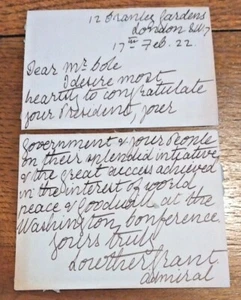 12 Cranley Gardens
London S.W.7
17th Feb. 22.
Dear Mr Cole
I desire most
heartily to congratulate
your President, your
Government & your People
on their splendid initiative
& the great success achieved
in the interest of world
peace & goodwill at the
Washington Conference
Yours truly
Lowther Grant
Admiral